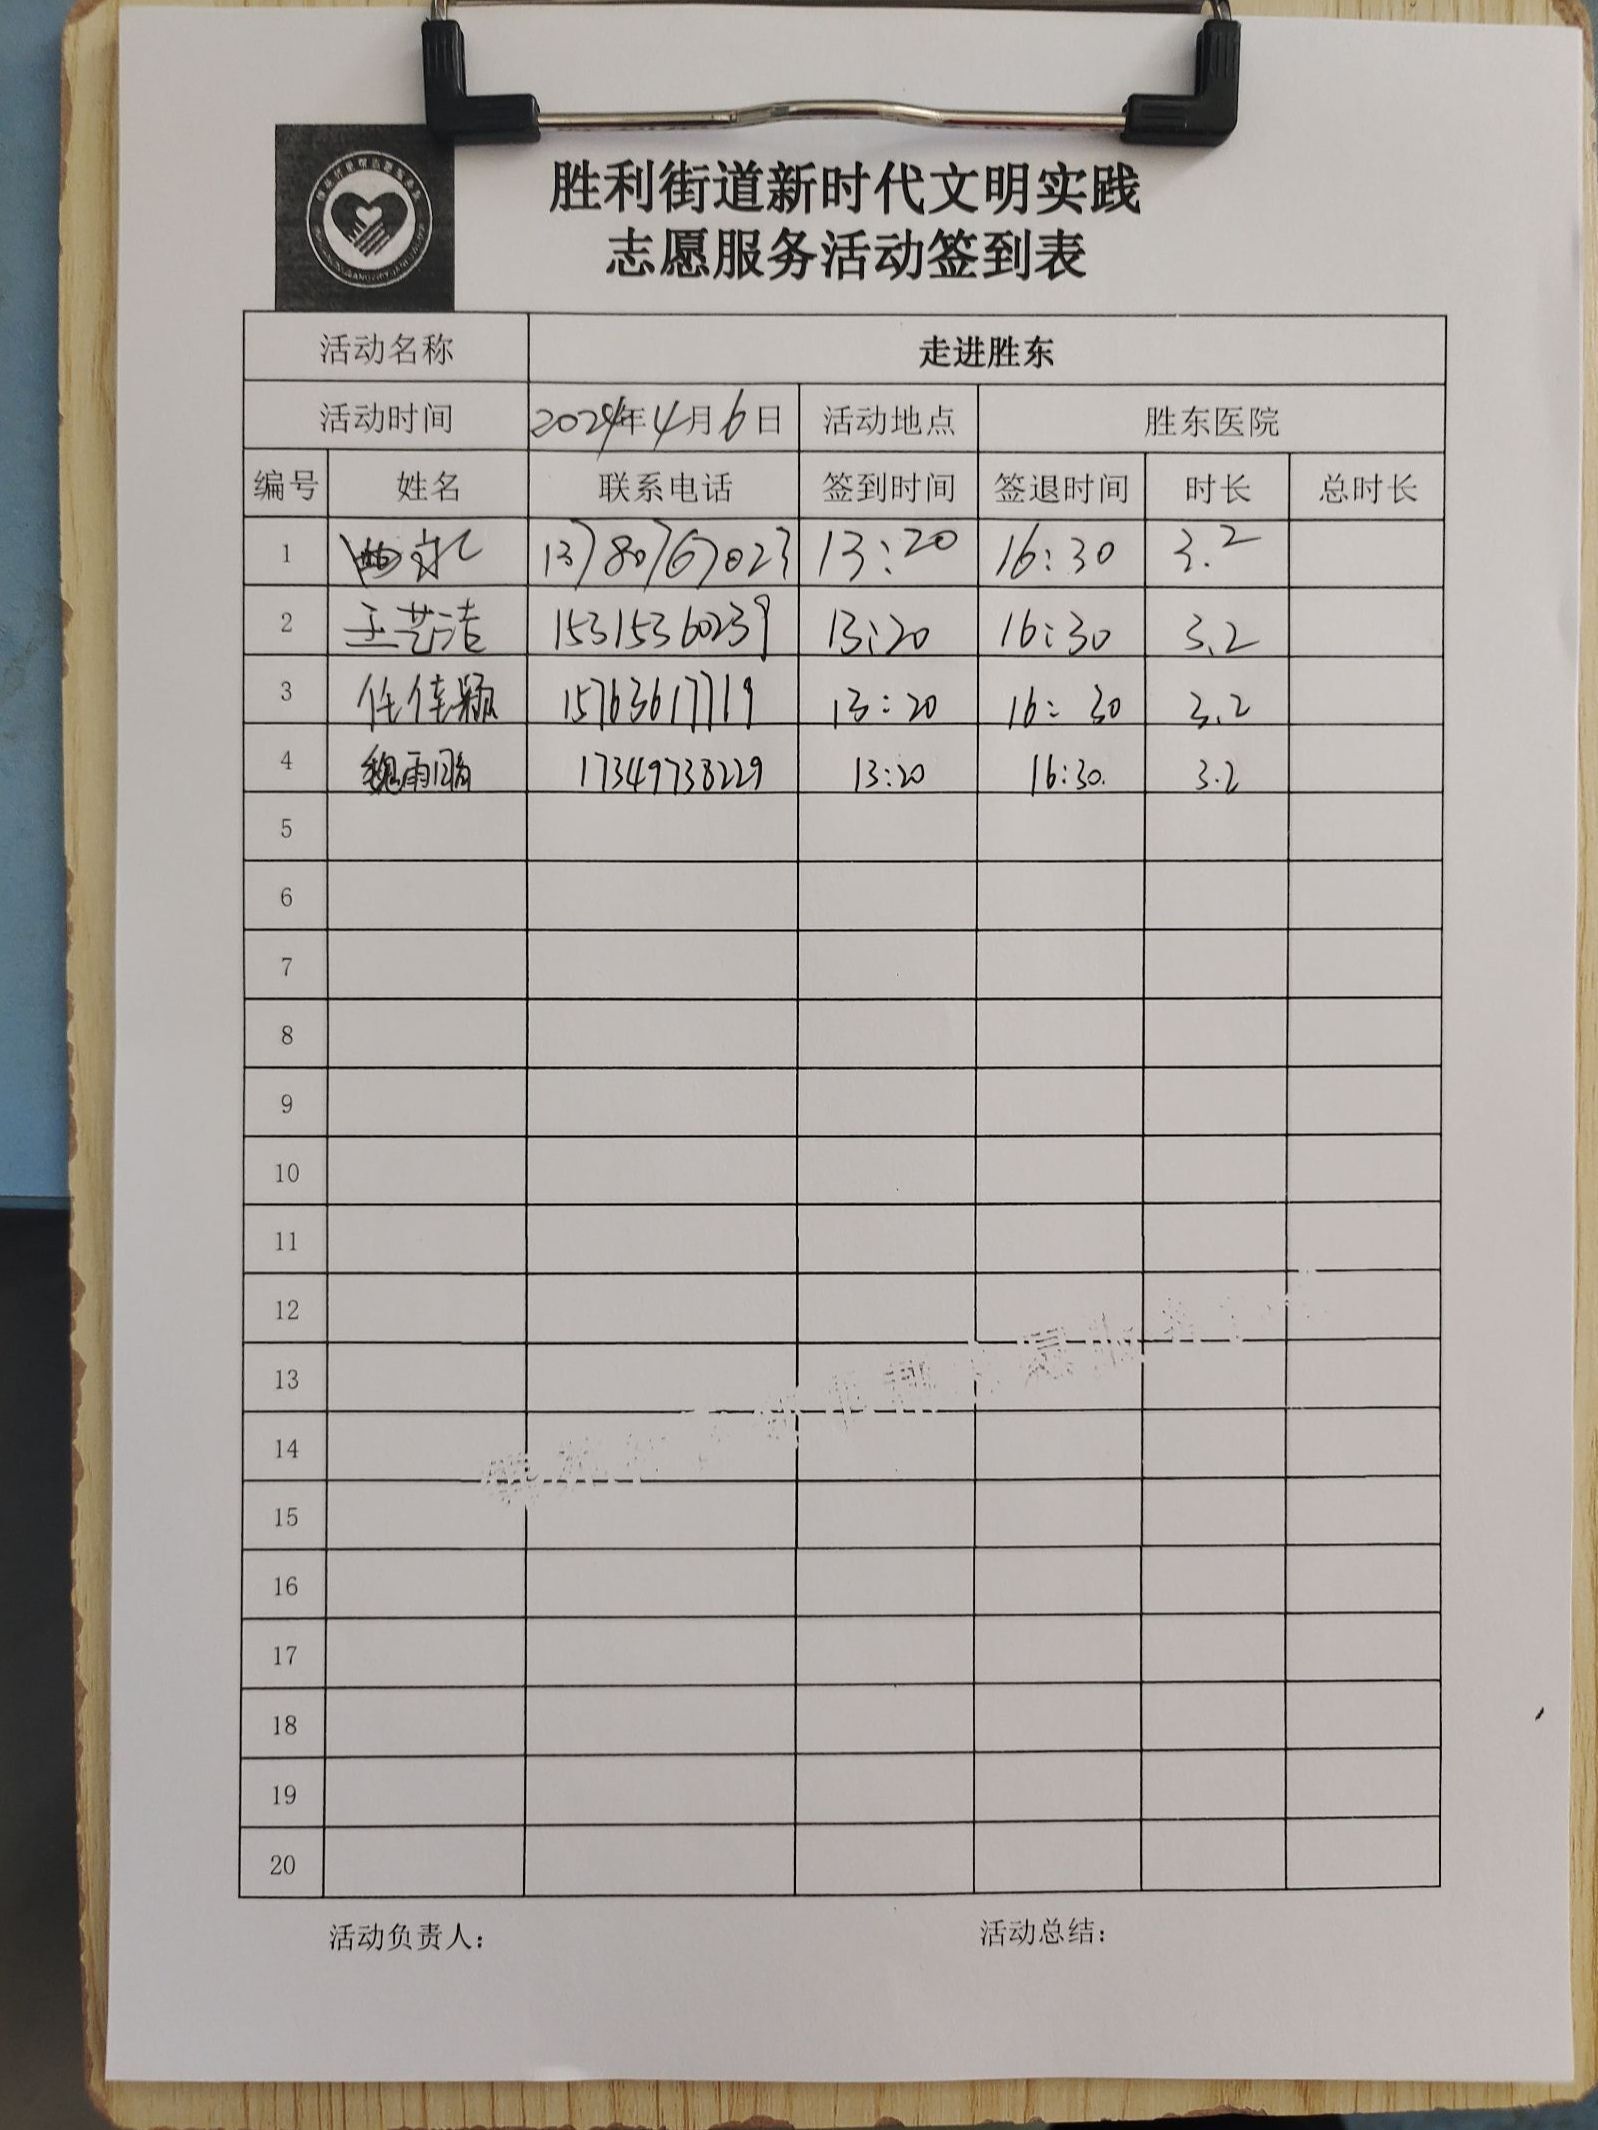 胜利街道新时代文明实践
志愿服务活动签到表
活动名称 走进胜东
活动时间 2024年4月6日 活动地点 胜东医院
编号 姓名 联系电话 签到时间 签退时间 时长 总时长
1 13780767023 13:20 16:30 3.2
2 王艺洁 15315360239 13:20 16:30 3.2
3 任佳颖 15763617719 13:20 16:30 3.2
4 魏雨 17349738229 13:20 16:30. 3.2
5
6
7
8
9
10
11
12
13
14
15
16
17
18
19
20
活动负责人： 活动总结：